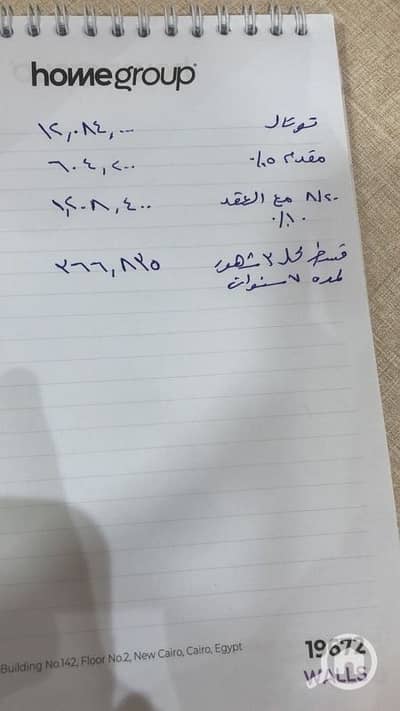 homegroup
توتال ١٢,٠٨٤,٠٠٠
مقدم ٥٪ ٦٠٤,٢٠٠
٨/٢٠ مع العقد ١,٢٠٨,٤٠٠
١٠٪
قسط كل ٣ شهور ٣٦٦,٨٣٥
لمده ٧ سنوات
Building No.142, Floor No.2, New Cairo, Cairo, Egypt
19672
WALLS